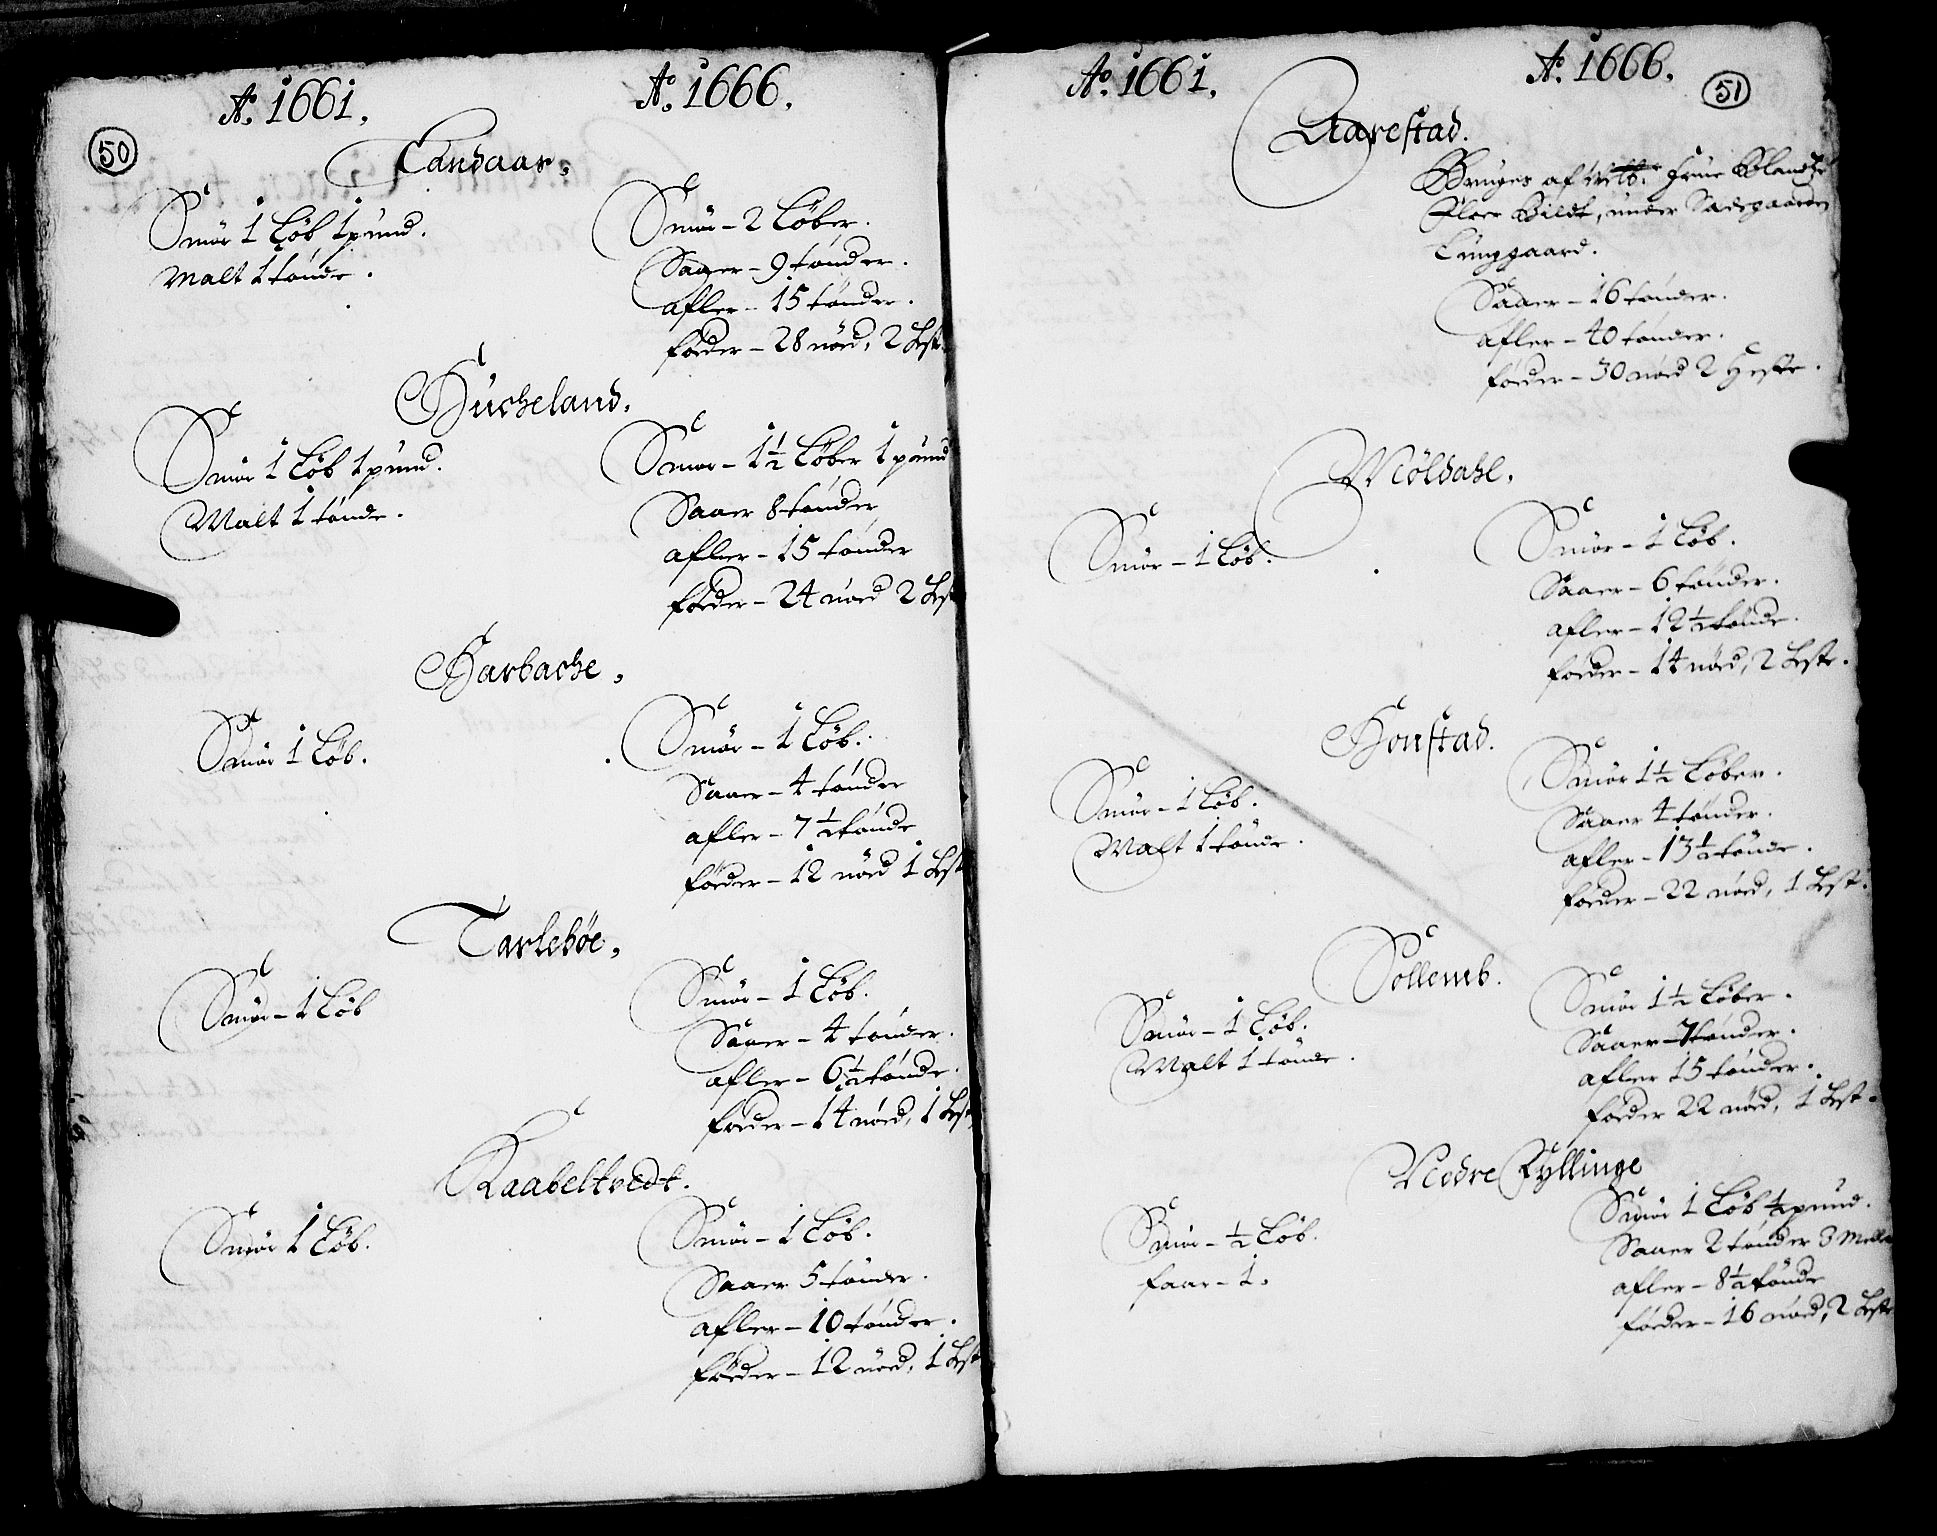 50
Ao. 1661.
Ao. 1666.
Tandaar.
Smör 1 Löb 1 pund.
Malt 1 tönde.
Smör – 2 Löber.
Saaer – 9 tønder.
afler – 15 tønder.
föder – 28 nöed, 2 Hest
Hucheland.
Smör 1 Löb 1 pund.
Malt 1 tönde.
Smör – 1½ Löber 1 pund
Saaer 8 tønder
afler – 15 tønder
föder – 24 nöed 2 Hest
Harbache.
Smör 1 Löb.
Smör – 1 Löb.
Saaer – 4 tønder
afler – 7½ tønde
föder – 12 nöed 1 Hest
Tarlehöe.
Smör – 1 Löb
Smör – 1 Löb.
Saaer – 4 tønder.
afler – 6½ tønde.
föder – 14 nöed, 1 Hest
Kaabeltvedt.
Smör 1 Löb.
Smör – 1 Löb.
Saaer 5 tønder.
afler – 10 tønder.
föder – 12 nöed, 1 Hest
51
Ao. 1661.
Ao. 1666.
Aarestad.
Bruges af Frue
Bildt, under Sædegaarden
Lunggaard.
Saaer – 16 tønder.
afler – 40 tønder.
föder – 30 nöed 2 Heste.
Möldahl.
Smör – 1 Löb.
Smör – 1 Löb.
Saaer – 6 tønder.
afler – 12½ tønde.
föder – 14 nöed, 2 Heste.
Honstad.
Smör – 1 Löb.
Malt 1 tönde.
Smör 1½ Löber.
Saaer 4 tønder.
afler – 13½ tønde.
föder – 22 nöed, 1 Hest.
Sollemb.
Smör – 1 Löb.
Malt 1 tönde.
Smör 1½ Löber.
Saaer – 7 tønder.
afler 15 tønder.
föder 22 nöed, 1 Hest.
Nedre Fyllinge
Smör – ½ Löb.
faar – 1.
Smör 1 Löb ½ pund.
Saaer 2 tønder 3 Meller
afler – 8½ tønde
föder – 16 nöed, 2 Heste